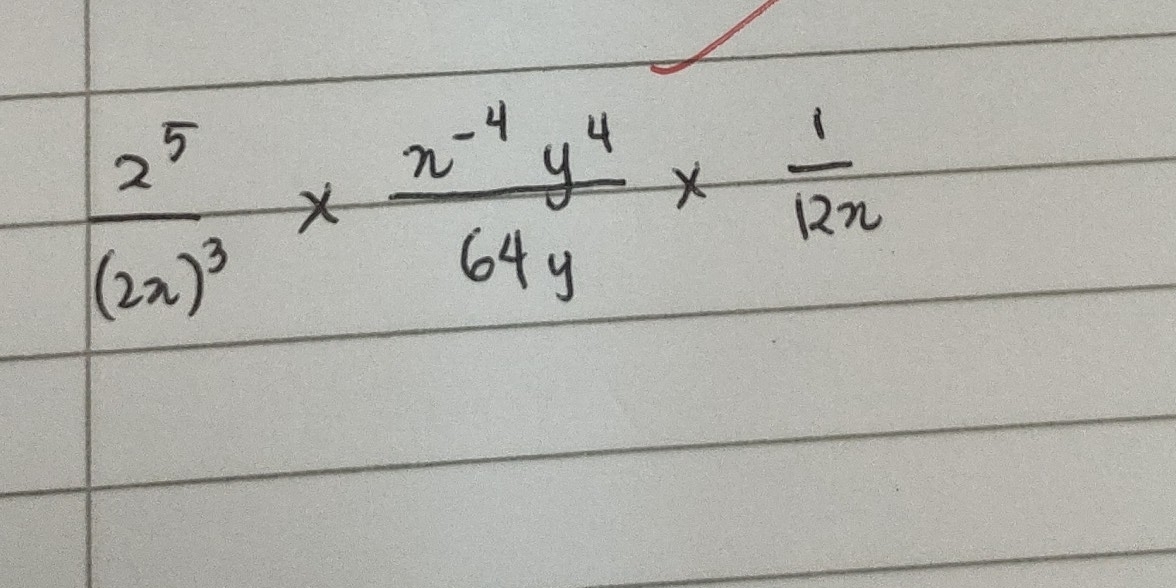 2⁵/(2x)³ × x⁻⁴ y⁴/64y × 1/12x